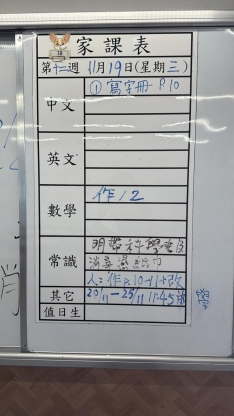 家課表
第十二週 11月19日(星期三)
中文 ①寫字冊 P.10
英文
數學 作12
常識 明帶科學書
消毒濕紙巾
人：作 P.10-11+改
其它 20/11-25/11 11:45放學
值日生